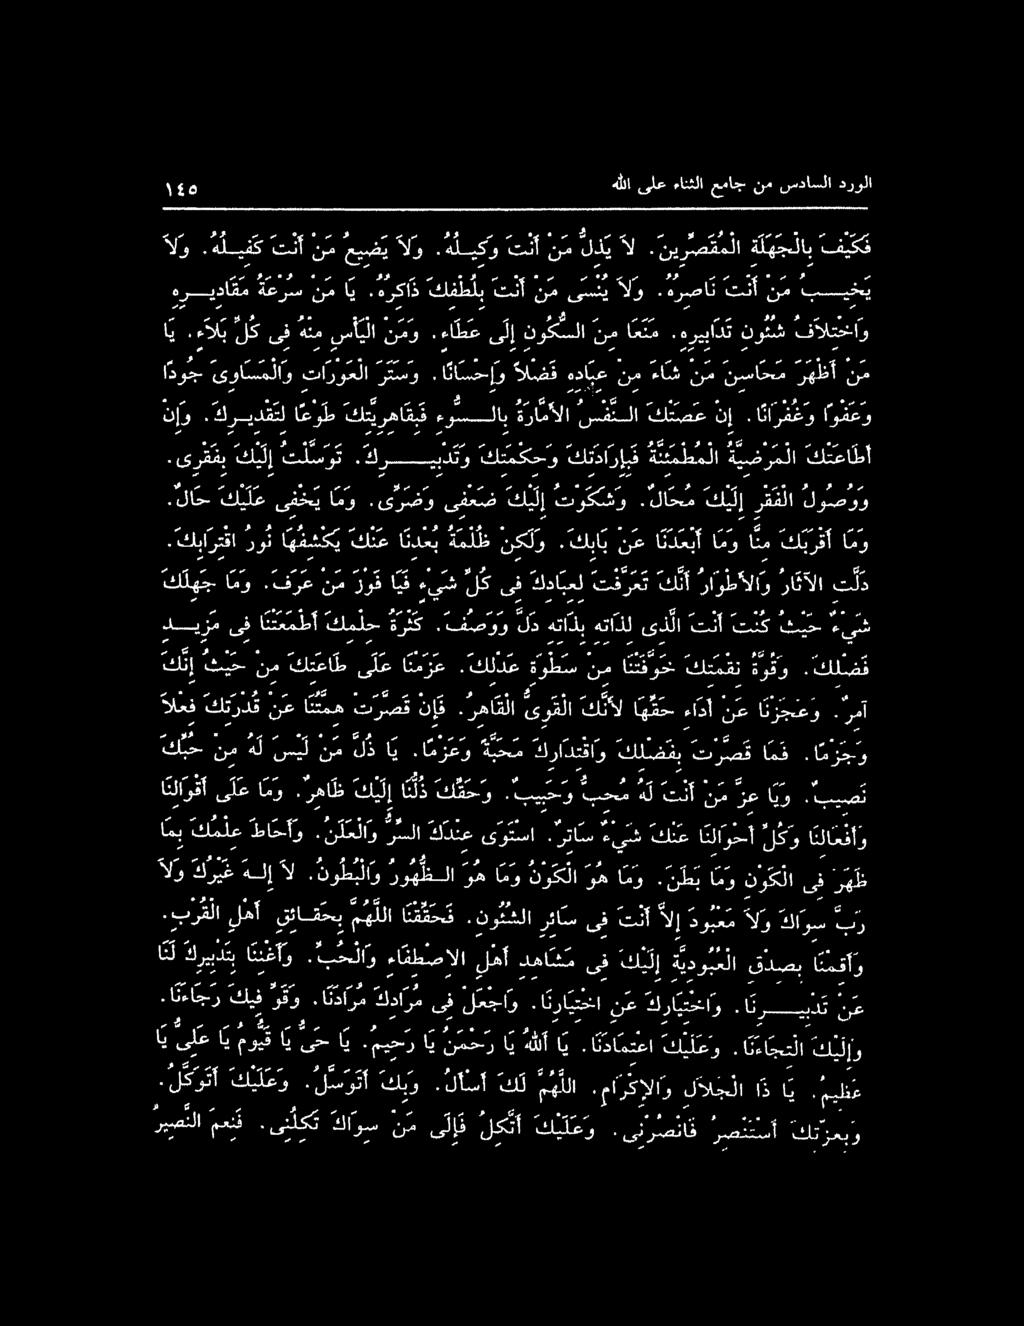 الورد السادس من جامع الثناء على الله ١٤٥
فَكَيْفَ بِالْجَهَلَةِ الْمُقَصِّرِينَ. لاَ يَذِلُّ مَنْ أَنْتَ وَكِيلُهُ. وَلاَ يَضِيعُ مَنْ أَنْتَ كَفِيلُهُ. وَلاَ
يَخِيبُ مَنْ أَنْتَ نَاصِرُهُ. وَلاَ يُنْسَى مَنْ أَنْتَ بِلُطْفِكَ ذَاكِرُهُ. يَا مَنْ سُرْعَةُ مَقَادِيرِهِ
وَاخْتِلاَفُ شُئُونِ تَدَابِيرِهِ. مَنَعَا مِنَ السُّكُونِ إِلَى عَطَاءٍ. وَمَنْ الْيَأْسِ مِنْهُ فِى كُلِّ بَلاَءٍ. يَا
مَنْ أَظْهَرَ مَحَاسِنَ مَنْ شَاءَ مِنْ عِبَادِهِ فَضْلاً وَإِحْسَانًا. وَسَتَرَ الْعَوْرَاتِ وَالْمَسَاوِىَ جُودًا
وَعَفْوًا وَغُفْرَانًا. إِنْ عَصَتْكَ النَّفْسُ الأَمَّارَةُ بِالسُّوءِ فَبِقَاهِرِيَّتِكَ طَوْعًا لِتَقْدِيرِكَ. وَإِنْ
أَطَاعَتْكَ الْمَرْضِيَّةُ الْمُطْمَئِنَّةُ فَبِإِرَادَتِكَ وَحِكْمَتِكَ وَتَدْبِيرِكَ. تَوَسَّلْتُ إِلَيْكَ بِفَقْرِى.
وَوُصُولُ الْفَقْرِ إِلَيْكَ مُحَالٌ. وَشَكَوْتُ إِلَيْكَ ضَعْفِى وَضَرِّى. وَمَا يَخْفِى عَلَيْكَ حَالٌ.
وَمَا أَقْرَبَكَ مِنَّا وَمَا أَبْعَدَنَا عَنْ بَابِكَ. وَلَكِنْ ظُلْمَةُ بُعْدِنَا عَنْكَ يَكْشِفُهَا نُورُ اقْتِرَابِكَ.
دَلَّتِ الآثَارُ وَالأَطْوَارُ أَنَّكَ تَعَرَّفْتَ لِعِبَادِكَ فِى كُلِّ شَيْءٍ فَيَا فَوْزَ مَنْ عَرَفَ. وَمَا جَهِلَكَ
شَيْءٌ حَيْثُ كُنْتَ أَنْتَ الَّذِى لِذَاتِهِ بِذَاتِهِ دَلَّ وَوَصَفَ. كَثْرَةُ حِلْمِكَ أَطْمَعَتْنَا فِى مَزِيدِ
فَضْلِكَ. وَقُوَّةُ نِقْمَتِكَ خَوَّفَتْنَا مِنْ سَطْوَةِ عَدْلِكَ. عَزَمْنَا عَلَى طَاعَتِكَ مِنْ حَيْثُ إِنَّكَ
آمِرٌ. وَعَجَزْنَا عَنْ أَدَاءِ حَقِّهَا لأَنَّكَ الْقَوِىُّ الْقَاهِرُ. فَإِنْ قَصَّرَتْ هِمَّتُنَا عَنْ قُدْرَتِكَ فِعْلاً
وَجَزْمًا. فَمَا قَصَّرْتَ بِفَضْلِكَ وَاقْتِدَارِكَ مَحَبَّةً وَعَزْمًا. يَا ذُلَّ مَنْ لَيْسَ لَهُ مِنْ حُبِّكَ
نَصِيبٌ. وَيَا عِزَّ مَنْ أَنْتَ لَهُ مُحِبٌّ وَحَبِيبٌ. وَحَقِّكَ ذُلُّنَا إِلَيْكَ ظَاهِرٌ. وَمَا عَلَى أَقْوَالِنَا
وَأَفْعَالِنَا وَكُلِّ أَحْوَالِنَا عَنْكَ شَيْءٌ سَاتِرٌ. اسْتَوَى عِنْدَكَ السِّرُّ وَالْعَلَنُ. وَأَحَاطَ عِلْمُكَ بِمَا
ظَهَرَ فِى الْكَوْنِ وَمَا بَطَنَ. وَمَا هُوَ الْكَوْنُ وَمَا هُوَ الظُّهُورُ وَالْبُطُونُ. لاَ إِلَهَ غَيْرُكَ وَلاَ
رَبَّ سِوَاكَ وَلاَ مَعْبُودَ إِلاَّ أَنْتَ فِى سَائِرِ الشُّئُونِ. فَحَقِّقْنَا اللَّهُمَّ بِحَقَائِقِ أَهْلِ الْقُرْبِ.
وَأَقِمْنَا بِصِدْقِ الْعُبُودِيَّةِ إِلَيْكَ فِى مَشَاهِدِ أَهْلِ الاِصْطِفَاءِ وَالْحُبِّ. وَأَغْنِنَا بِتَدْبِيرِكَ لَنَا
عَنْ تَدْبِيرِنَا. وَاخْتِيَارِكَ عَنِ اخْتِيَارِنَا. وَاجْعَلْ فِى مُرَادِكَ مُرَادَنَا. وَقَوِّ فِيكَ رَجَاءَنَا.
وَإِلَيْكَ الْتِجَاءَنَا. وَعَلَيْكَ اعْتِمَادَنَا. يَا أَللهُ يَا رَحْمَنُ يَا رَحِيمُ. يَا حَىُّ يَا قَيُّومُ يَا عَلِىُّ يَا
عَظِيمُ. يَا ذَا الْجَلاَلِ وَالإِكْرَامِ. اللَّهُمَّ لَكَ أَسْأَلُ. وَبِكَ أَتَوَسَّلُ. وَعَلَيْكَ أَتَوَكَّلُ.
وَبِعِزَّتِكَ أَسْتَنْصِرُ فَانْصُرْنِى. وَعَلَيْكَ أَتَّكِلُ فَإِلَى مَنْ سِوَاكَ تَكِلُنِى. فَنِعْمَ النَّصِيرُ